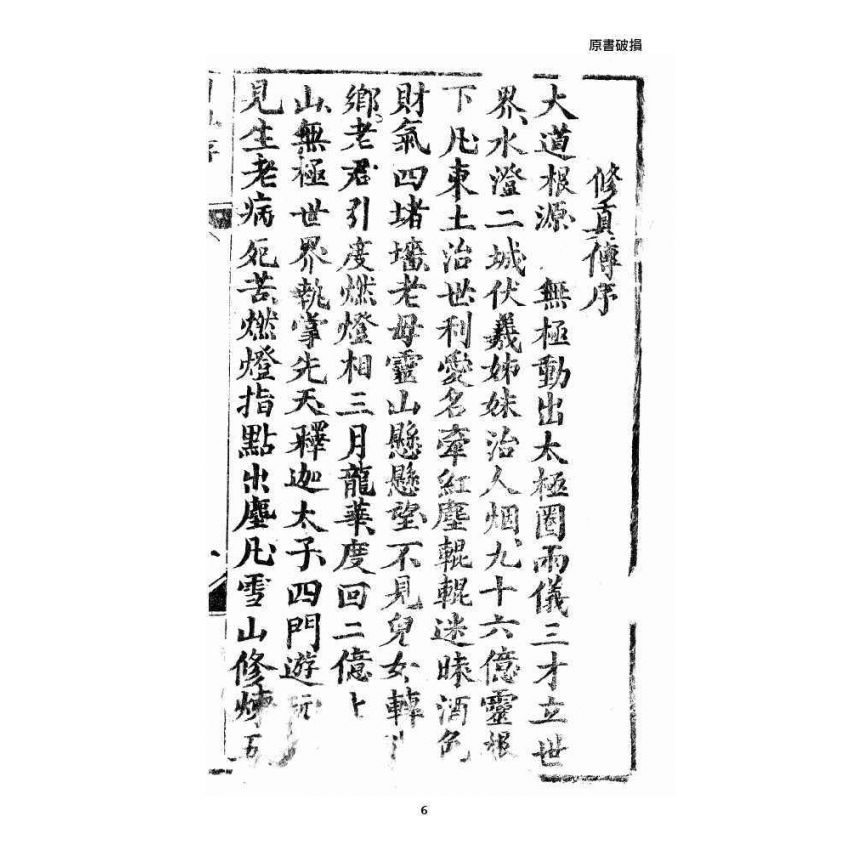 原書破損
修真傳序
大道根源　無極動出太極圈兩儀三才立世
界水澄二城伏羲姊妹治人烟九十六億靈根
下凡東土治世利愛名牽紅塵輥輥迷昧酒色
財氣四堵墻老母靈山懸懸望不見兒女轉
鄉老君引度燃燈相三月龍華度回二億
山無極世界執掌先天釋迦太子四門遊玩
見生老病死苦燃燈指點出塵凡雪山修煉五
序
6